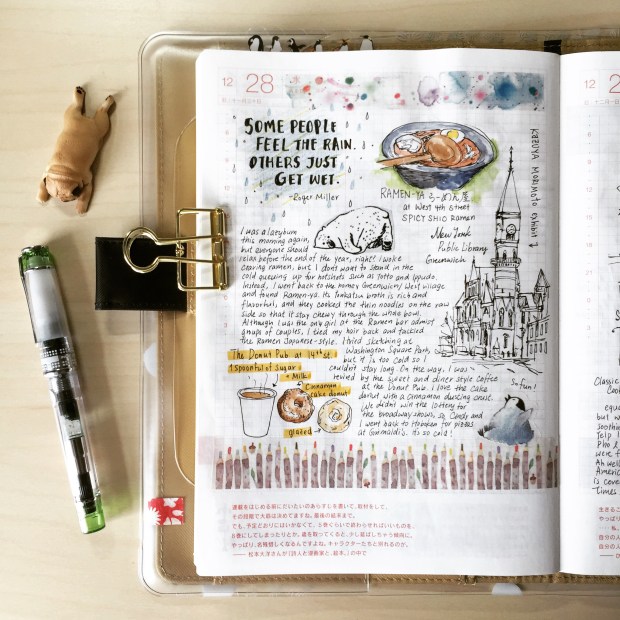 12
28
SOME PEOPLE
FEEL THE RAIN.
OTHERS JUST
GET WET.
-Roger Miller
RAMEN-YA らーめん屋
at West 4th Street
SPICY SHIO Ramen
KAZUYA MORIMOTO
New York
Public Library
Greenwich
I was a lazybum
this morning again,
but everyone should
relax before the end of the year, right? I woke
craving ramen, but I don't want to stand in the
cold queuing up for hotshots such as Totto and Ippudo.
Instead, I went back to the homey Greenwich/West Village
and found Ramen-ya. Its tonkotsu broth is rich and
flavorful, and they cooked the thin noodles on the raw
side so that it stay chewy through the whole bowl.
Although I was the only girl at the Ramen bar amidst
groups of couples, I tied my hair back and tackled
the Ramen Japanese-style. I tried sketching at
Washington Square Park,
but it is too cold so I
couldn't stay long. On the way, I was
revived by the sweet and diner style coffee
at the Donut Pub. I love the cake
donut with a cinnamon dusting crust.
We didn't win the lottery for
the broadway shows, so Cindy and
I went back to Hoboken for pizzas
at Grimaldi's. It's so cold!
The Donut Pub at 14th st
1 spoonful of sugar
+ Milk
Cinnamon
cake donut
glazed
So fun!
連載をはじめる前にだいたいのあらすじを書いて、取材をして、
その段階で大筋は決めてますね。最後の絵本まで。
でも、予定どおりにはいかなくて、5巻くらいで終わらせればいいものを
8巻にしてしまったりとか。歳を取ってくると、少し延ばしちゃう傾向に、
やっぱり、名残惜しくなるんですよね。キャラクターたちと別れるのが。
12
2
Classic
Cook
equa
but w
soothin
Yelp l
Pho l
were f
Ah wel
Americ
is cove
Times
生きるこ
やっぱり
私、
自分の人
自分の人